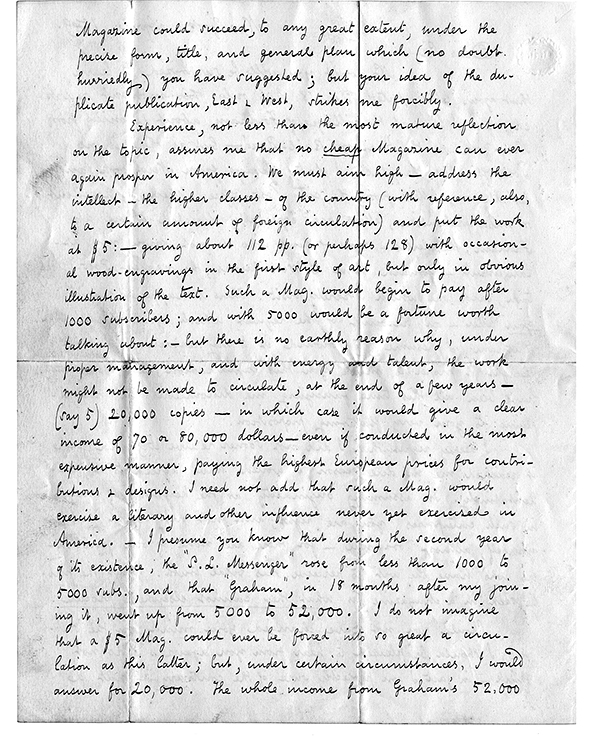 Magazine could succeed, to any great extent, under the
precise form, title, and general plan which (no doubt
hurriedly) you have suggested; but your idea of the du-
plicate publication, East & West, strikes me forcibly.
Experience, not less than the most mature reflection
on the topic, assures me that no cheap Magazine can ever
again prosper in America. We must aim high — address the
intellect — the higher classes — of the country (with reference, also,
to a certain amount of foreign circulation) and put the work
at $5: — giving about 112 pp. (or perhaps 128) with occasion-
al wood-engravings in the first style of art, but only in obvious
illustration of the text. Such a Mag. would begin to pay after
1000 subscribers; and with 5000 would be a fortune worth
talking about: — but there is no earthly reason why, under
proper management, and with energy and talent, the work
might not be made to circulate, at the end of a few years —
(say 5) 20,000 copies — in which case it would give a clear
income of 70 or 80,000 dollars — even if conducted in the most
expensive manner, paying the highest European prices for contri-
butions & designs. I need not add that such a Mag. would
exercise a literary and other influence never yet exercised in
America. — I presume you know that during the second year
of its existence, the "S. L. Messenger" rose from less than 1000 to
5000 subs., and that "Graham", in 18 months after my join-
ing it, went up from 5000 to 52,000. I do not imagine
that a $5 Mag. could ever be forced into so great a circu-
lation as this latter; but, under certain circumstances, I would
answer for 20,000. The whole income from Graham's 52,000